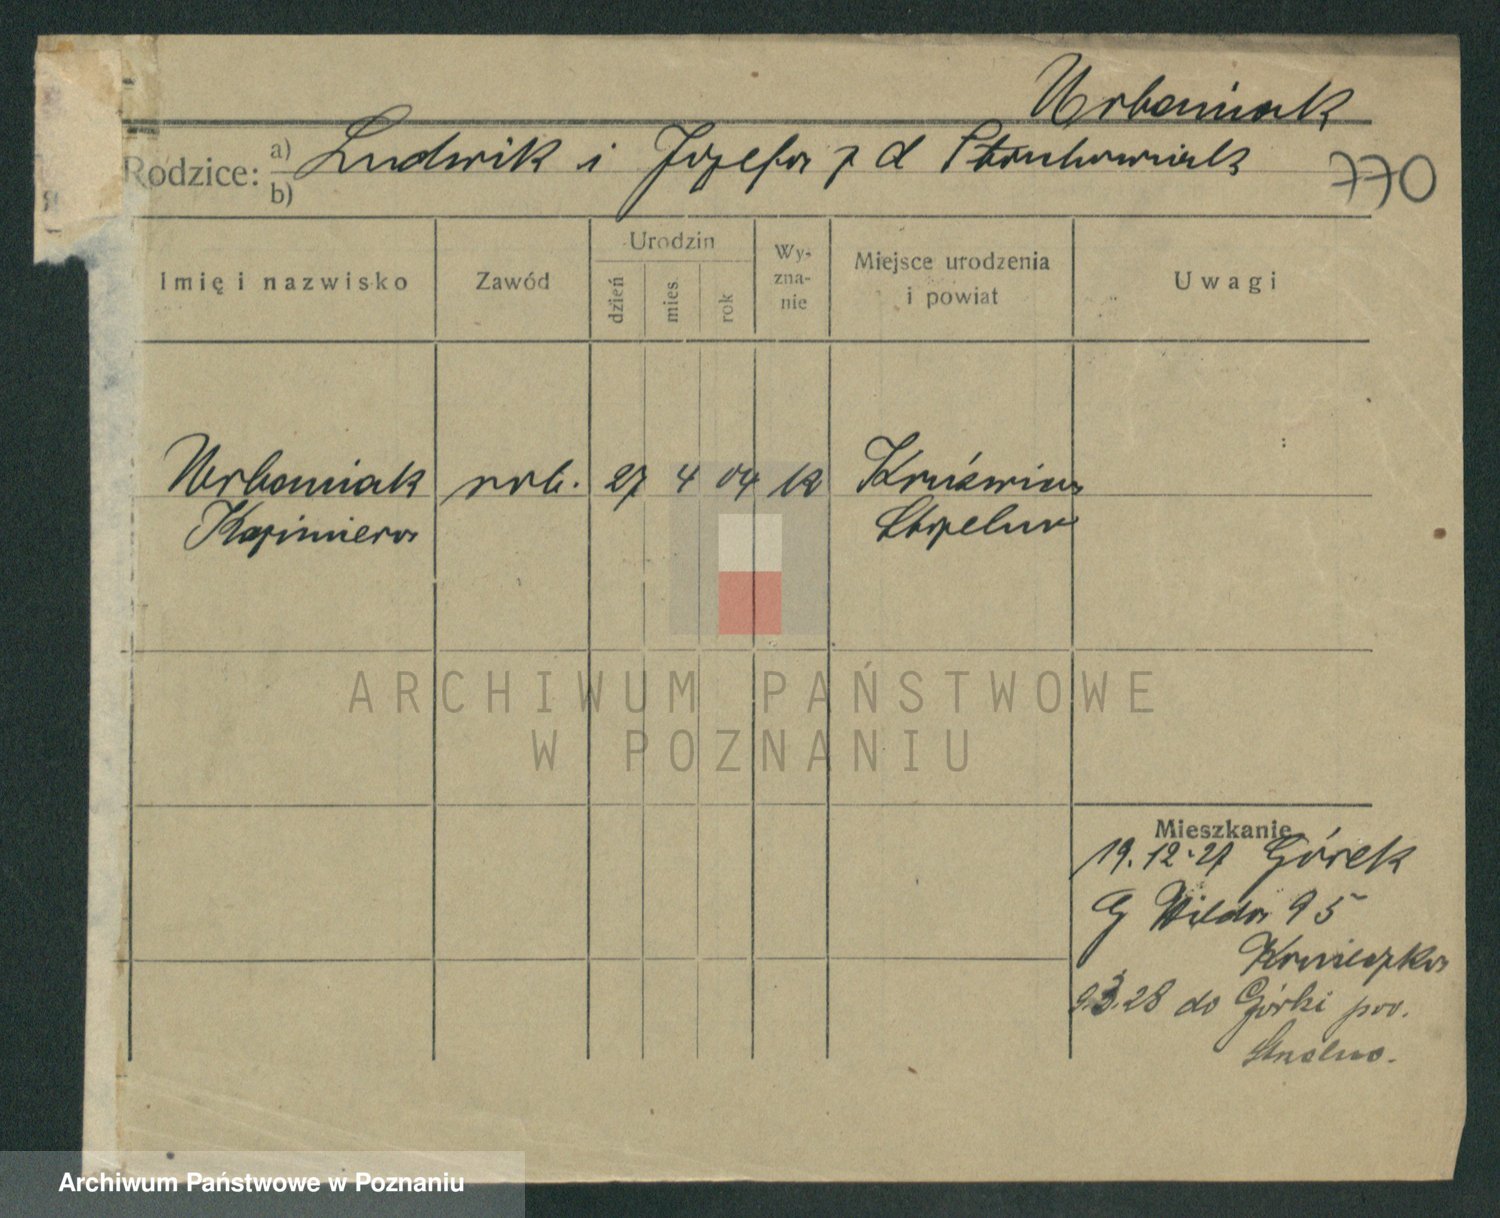 Urbaniak
Rodzice: a) Ludwik i Józefa z d
b)
770
Imię i nazwisko
Zawód
Urodzin
dzień
mies
rok
Wy-
zna-
nie
Miejsce urodzenia
i powiat
Uwagi
Urbaniak rob. 27 4 04 k Kruświca
Kazimiera Strzelno
ARCHIWUM PAŃSTWOWE
W POZNANIU
Mieszkanie
19.12.27 Górek
G Wilda 95
Konieczka
9.3.28 do Górki pow.
Archiwum Państwowe w Poznaniu